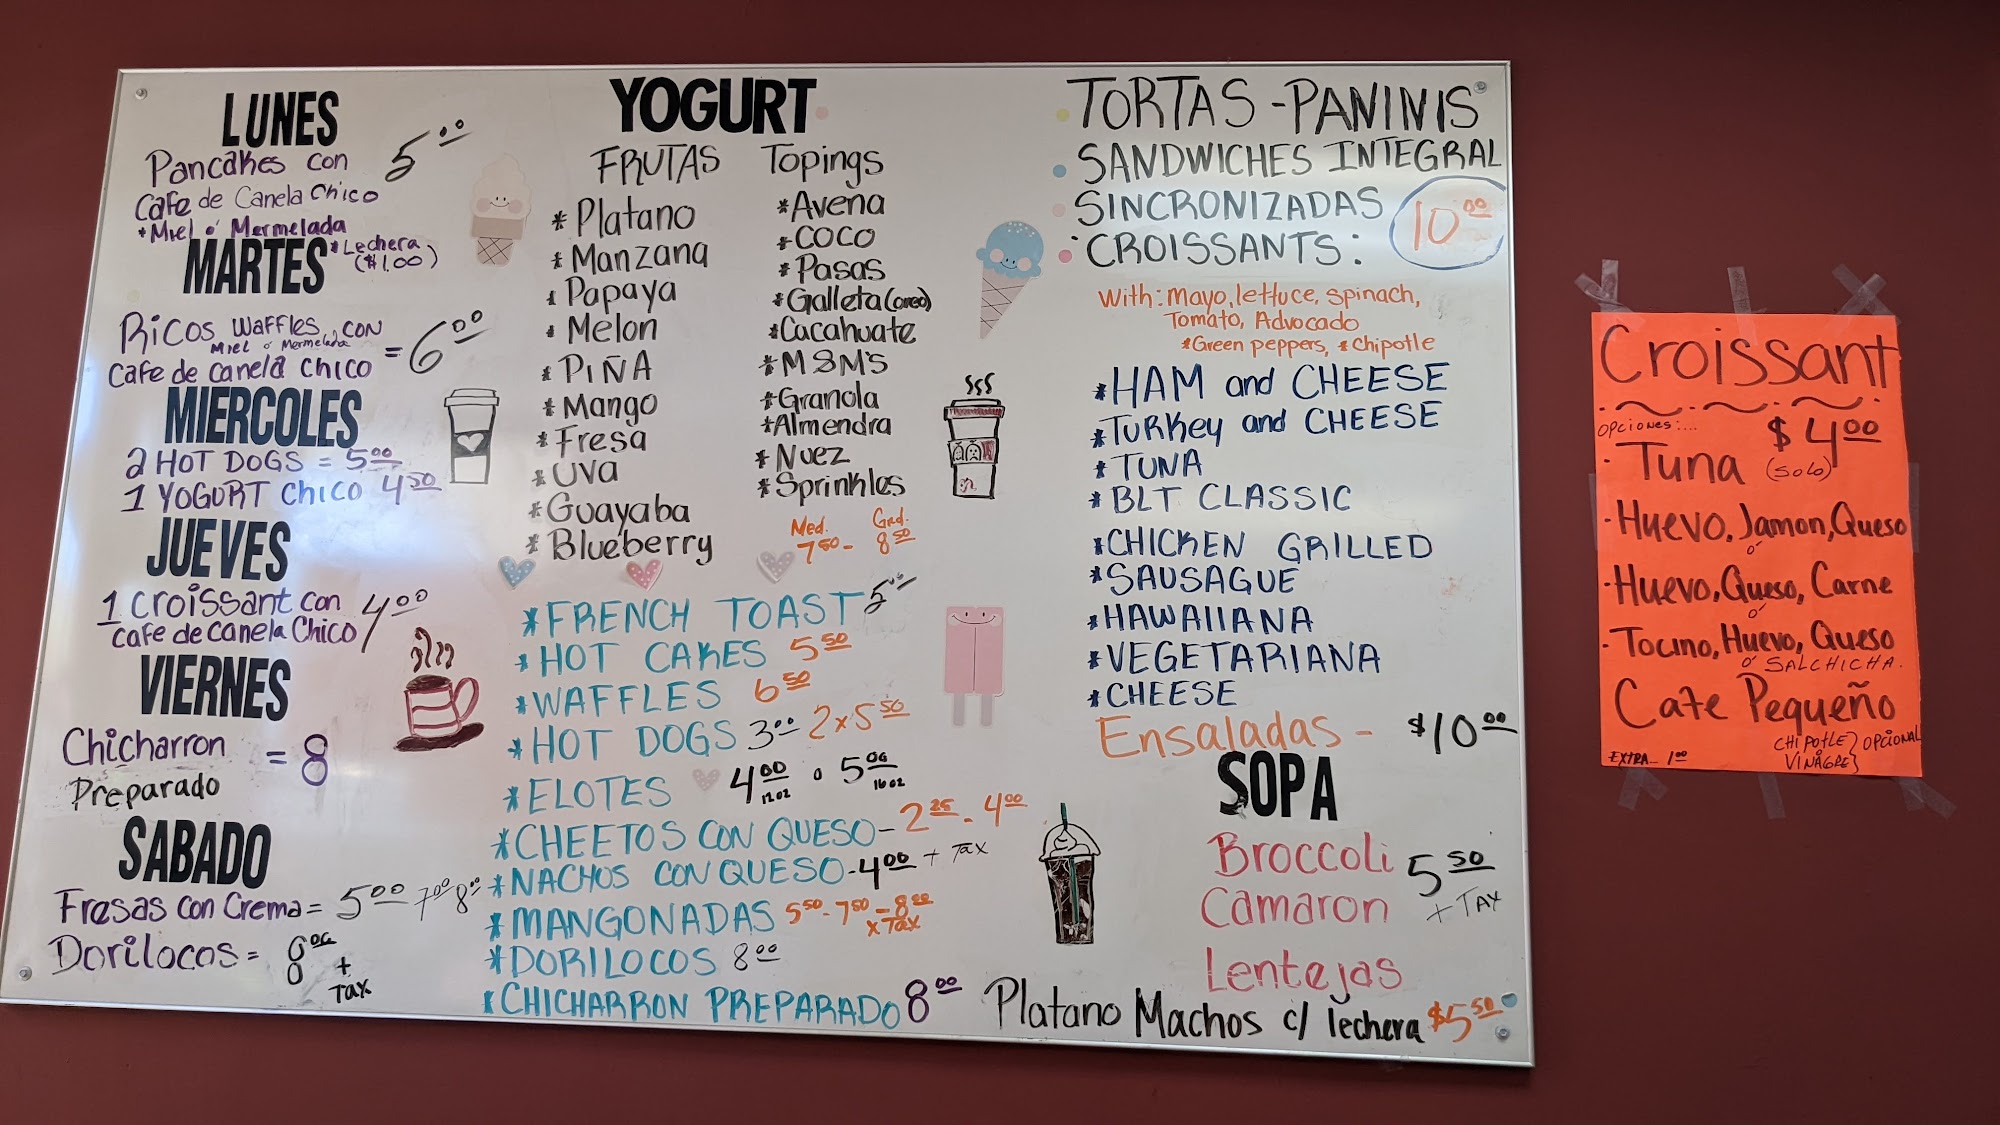 LUNES
Pancakes con 5.00
Cafe de Canela Chico
*Miel ó Mermelada
*Lechera
($1.00)
MARTES
Ricos Waffles con
Miel o Mermelada
Cafe de canela chico = 6.00
MIERCOLES
2 HOT DOGS = 5.00
1 YOGURT Chico 4.50
JUEVES
1 Croissant con
Cafe de Canela Chico 4.00
VIERNES
Chicharron = 8
Preparado
SABADO
Fresas con Crema = 5.00 7.00 8.00
Dorilocos = 8.00
+
Tax
YOGURT
FRUTAS
* Platano
* Manzana
* Papaya
* Melon
* PIÑA
* Mango
* Fresa
* UVA
* Guayaba
* Blueberry
Topings
*Avena
*COCO
*Pasas
*Galleta (oreo)
*Cacahuate
*M&M'S
*Granola
*Almendra
* Nuez
*Sprinkles
Med. Grd.
7.50 - 8.50
*FRENCH TOAST 5.00
*HOT CAKES 5.50
*WAFFLES 6.50
*HOT DOGS 3.00 2x5.50
*ELOTES 4.00 o 5.00
12oz 16oz
*CHEETOS CON QUESO- 2.25 - 4.00
*NACHOS CON QUESO-4.00 + Tax
*MANGONADAS 5.50 - 7.50 - 8.00
x Tax
*DORILOCOS 8.00
*CHICHARRON PREPARADO 8.00
TORTAS - PANINIS
SANDWICHES INTEGRAL
SINCRONIZADAS 10.00
CROISSANTS:
With: Mayo, lettuce, Spinach,
Tomato, Advocado
*Green peppers, *Chipotle
*HAM and CHEESE
*Turkey and CHEESE
*TUNA
*BLT CLASSIC
*CHICKEN GRILLED
*SAUSAGUE
*HAWAIIANA
*VEGETARIANA
*CHEESE
Ensaladas - $10.00
SOPA
Broccoli 5.50
Camaron + TAX
Lentejas
Platano Machos c/ lechera $5.50
Croissant
opciones:...
$4.00
· Tuna (SOLO)
· Huevo, Jamon, Queso
ó
· Huevo, Queso, Carne
ó
· Tocino, Huevo, Queso
ó SALCHICHA.
Cafe Pequeño
EXTRA... 1.00
CHIPOTLE } OPCIONAL
VINAGRE }